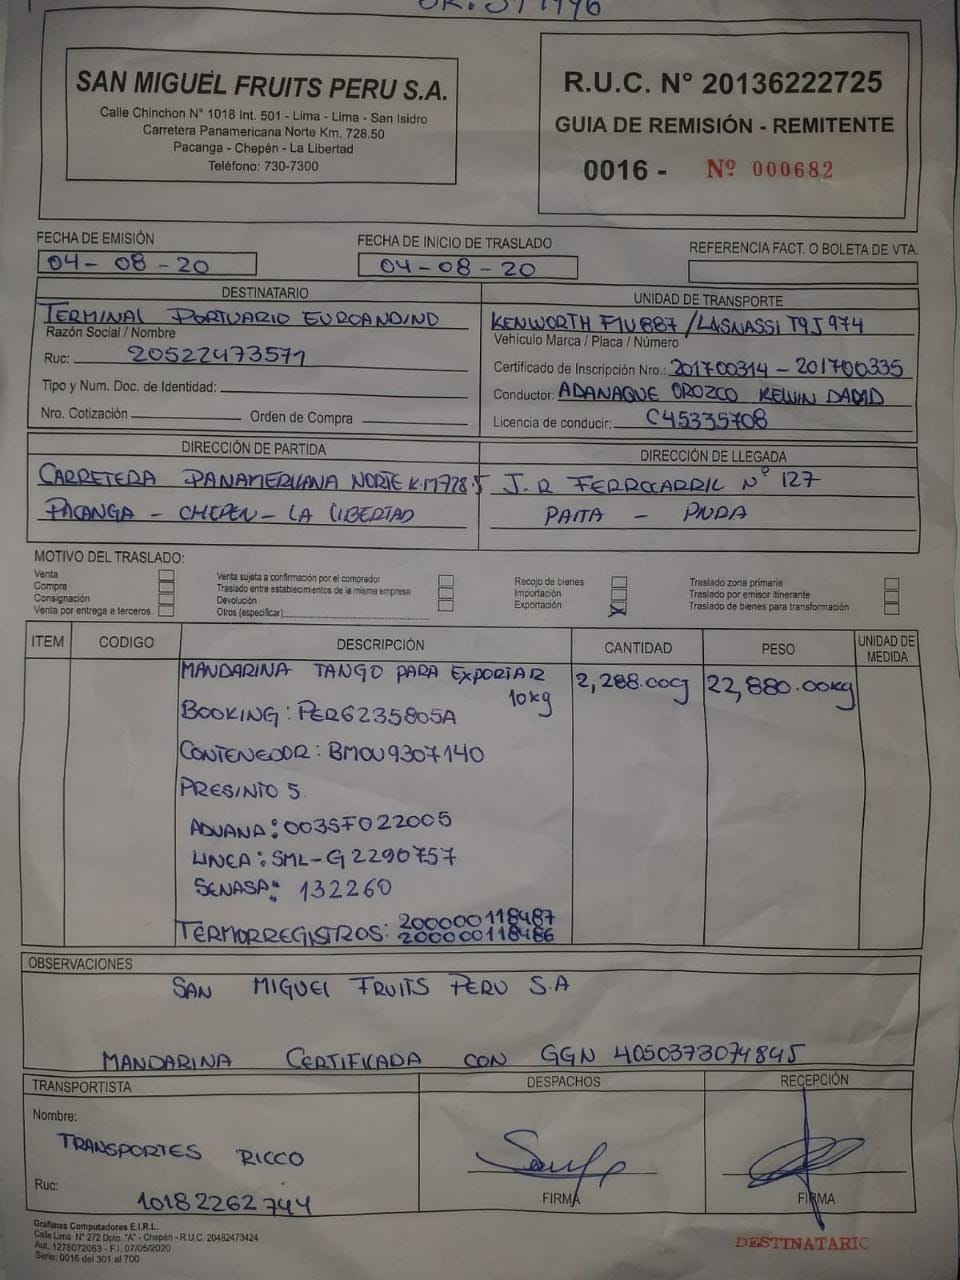 SAN MIGUEL FRUITS PERU S.A.
Calle Chinchon N° 1018 Int. 501 - Lima - Lima - San Isidro
Carretera Panamericana Norte Km. 728.50
Pacanga - Chepén - La Libertad
Teléfono: 730-7300
R.U.C. N° 20136222725
GUIA DE REMISIÓN - REMITENTE
0016 - Nº 000682
FECHA DE EMISIÓN
04-08-20
FECHA DE INICIO DE TRASLADO
04-08-20
REFERENCIA FACT. O BOLETA DE VTA.
DESTINATARIO
TERMINAL PORTUARIO EUROANDINO
Razón Social / Nombre
Ruc: 20522473571
Tipo y Num. Doc. de Identidad:
Nro. Cotización Orden de Compra
UNIDAD DE TRANSPORTE
KENWORTH F1U887 / LASNASSI T9J974
Vehículo Marca / Placa / Número
Certificado de Inscripción Nro.: 201700314 - 201700335
Conductor: ADANAQUE OROZCO KELWIN DAVID
Licencia de conducir: C45335708
DIRECCIÓN DE PARTIDA
CARRETERA PANAMERICANA NORTE K.M728.5
PACANGA - CHEPEN - LA LIBERTAD
DIRECCIÓN DE LLEGADA
J.R FERROCARRIL N° 127
PAITA - PIURA
MOTIVO DEL TRASLADO:
Venta
Compra
Consignación
Venta por entrega a terceros
Venta sujeta a confirmación por el comprador
Traslado entre establecimientos de la misma empresa
Devolución
Otros (especificar)
Recojo de bienes
Importación
Exportación X
Traslado zona primaria
Traslado por emisor itinerante
Traslado de bienes para transformación
ITEM CODIGO DESCRIPCIÓN CANTIDAD PESO UNIDAD DE MEDIDA
MANDARINA TANGO PARA EXPORTAR 2,288.00cj 22,880.00kg
10kg
BOOKING: PER6235805A
CONTENEDOR: BMOU9307140
PRESINTO S.
ADUANA: 003SF022005
LINEA: SML-G2290757
SENASA: 132260
TERMORREGISTROS: 200000118487
200000118486
OBSERVACIONES
SAN MIGUEL FRUITS PERU S.A
MANDARINA CERTIFICADA CON GGN 4050373074845
TRANSPORTISTA
Nombre:
TRANSPORTES RICCO
Ruc:
10182262744
DESPACHOS
FIRMA
RECEPCIÓN
FIRMA
Grafimas Computadoras E.I.R.L.
Calle Lima N° 272 Dpto. "A" - Chepén - R.U.C. 20482473424
Aut. 1278072063 - F.I. 07/05/2020
Serie: 0016 del 301 al 700
DESTINATARIO